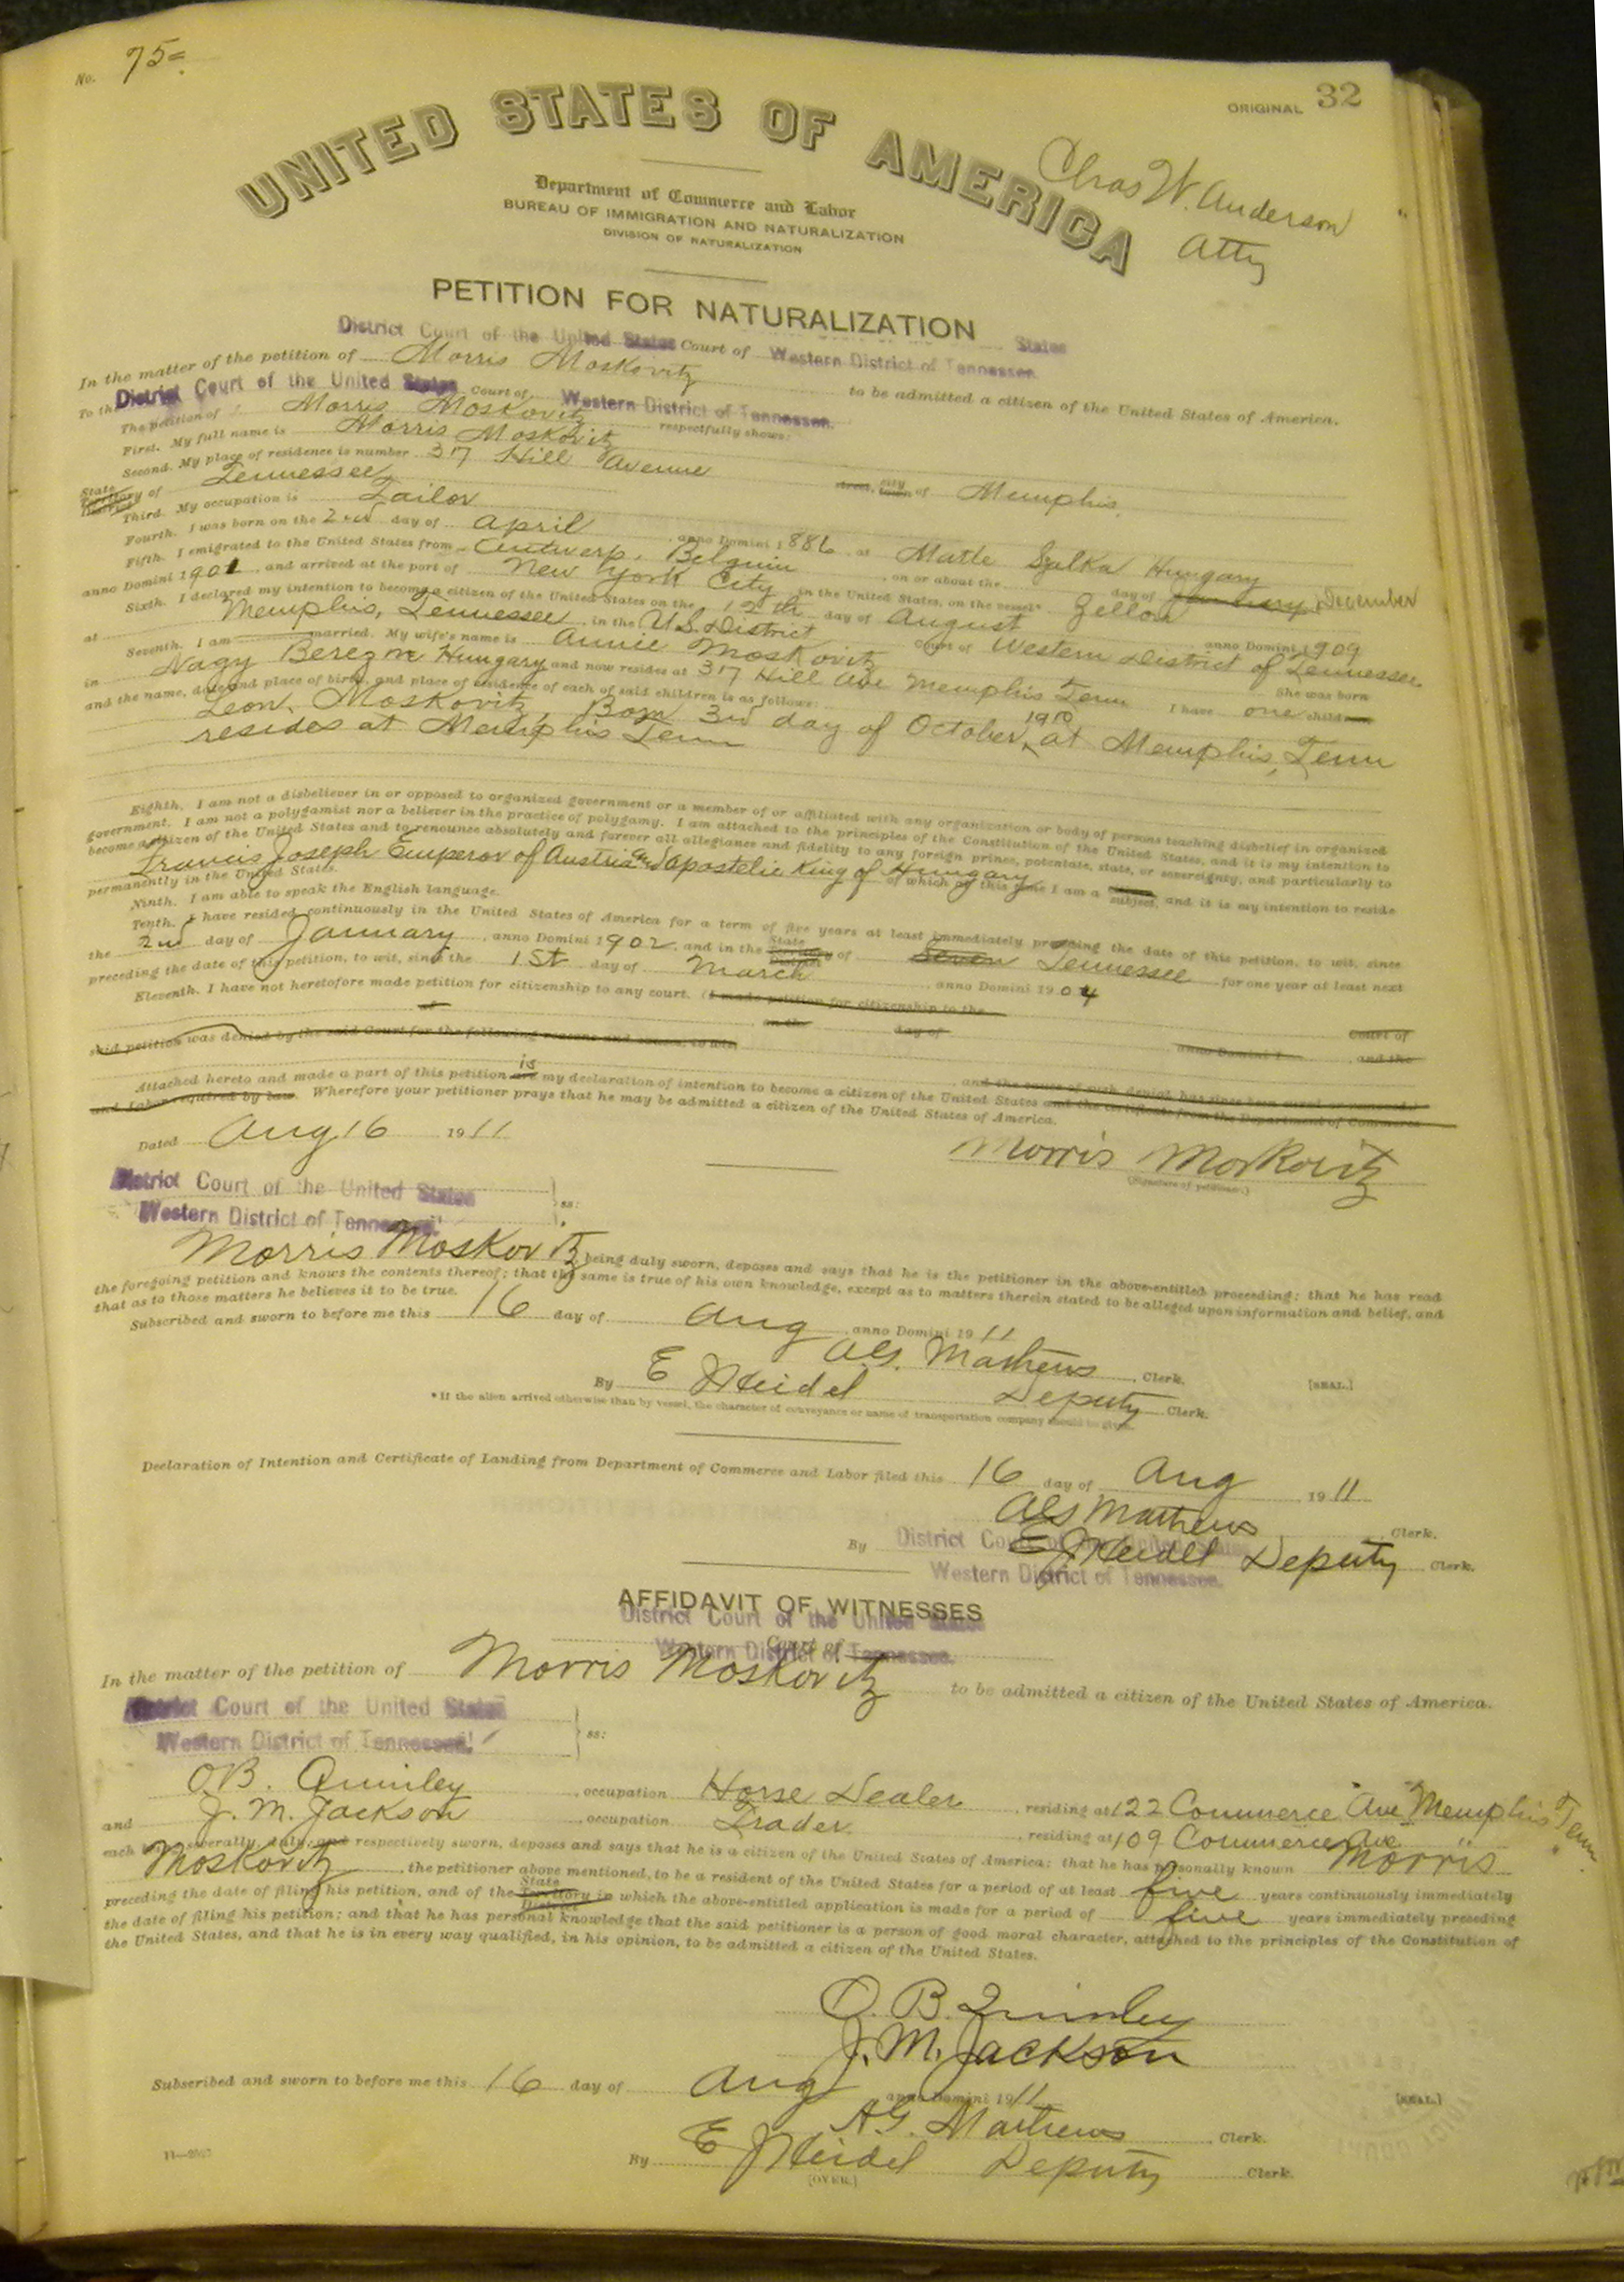 No. 75=
ORIGINAL 32
UNITED STATES OF AMERICA
Chas W. Anderson
Atty
Department of Commerce and Labor
BUREAU OF IMMIGRATION AND NATURALIZATION
DIVISION OF NATURALIZATION
PETITION FOR NATURALIZATION
District Court of the United States Court of Western District of Tennessee. States
In the matter of the petition of Morris Moskovitz to be admitted a citizen of the United States of America.
To the District Court of the United States Court of Western District of Tennessee.
The petition of Morris Moskovitz respectfully shows:
First. My full name is Morris Moskovitz
Second. My place of residence is number 37 Hill Avenue street, city town of Memphis,
State Territory District of Tennessee
Third. My occupation is Tailor
Fourth. I was born on the 2nd day of April anno Domini 1886, at Matle Szalka Hungary
Fifth. I emigrated to the United States from Antwerp, Belgium, on or about the day of December
anno Domini 1901, and arrived at the port of New York City in the United States, on the vessel*
Sixth. I declared my intention to become a citizen of the United States on the 12th day of August anno Domini 1909
at Memphis, Tennessee, in the U.S. District Court of Western District of Tennessee
Seventh. I am married. My wife's name is Annie Moskovitz She was born
in Nagy Hungary and now resides at 37 Hill Ave Memphis Tenn I have one child
and the name, date and place of birth, and place of residence of each of said children is as follows:
Leon. Moskovitz, Born 3rd day of October, 1910 at Memphis, Tenn
resides at Memphis Tenn
Eighth. I am not a disbeliever in or opposed to organized government or a member of or affiliated with any organization or body of persons teaching disbelief in organized
government. I am not a polygamist nor a believer in the practice of polygamy. I am attached to the principles of the Constitution of the United States, and it is my intention to
become a citizen of the United States and to renounce absolutely and forever all allegiance and fidelity to any foreign prince, potentate, state, or sovereignty, and particularly to
Francis Joseph Emperor of Austria and apostolic King of Hungary of which at this time I am a subject, and it is my intention to reside
permanently in the United States.
Ninth. I am able to speak the English language.
Tenth. I have resided continuously in the United States of America for a term of five years at least immediately preceding the date of this petition, to wit, since
the 2nd day of January, anno Domini 1902, and in the State Territory District of Seven Tennessee for one year at least next
preceding the date of this petition, to wit, since the 1st day of March, anno Domini 1904
Eleventh. I have not heretofore made petition for citizenship to any court. (I made petition for citizenship to the
at on the day of Court of
said petition was denied by the said Court for the following reasons and causes, to wit, anno Domini 1 and the
and the cause of such denial has since been cured or removed.)
Attached hereto and made a part of this petition are is my declaration of intention to become a citizen of the United States and the certificate from the Department of Commerce
and Labor required by law. Wherefore your petitioner prays that he may be admitted a citizen of the United States of America.
Dated Aug 16 1911
Morris Moskovitz
(Signature of petitioner.)
District Court of the United States
Western District of Tennessee. ss:
Morris Moskovitz being duly sworn, deposes and says that he is the petitioner in the above-entitled proceeding; that he has read
the foregoing petition and knows the contents thereof; that the same is true of his own knowledge, except as to matters therein stated to be alleged upon information and belief, and
that as to those matters he believes it to be true.
Subscribed and sworn to before me this 16 day of Aug, anno Domini 1911
Mathews, Clerk. [SEAL.]
By E J Heidel Deputy Clerk.
*If the alien arrived otherwise than by vessel, the character of conveyance or name of transportation company should be given.
Declaration of Intention and Certificate of Landing from Department of Commerce and Labor filed this 16 day of Aug, 1911
Mathews, Clerk.
By District Court of the United States E J Heidel Deputy Clerk.
Western District of Tennessee.
AFFIDAVIT OF WITNESSES
District Court of the United States
Court of Western District of Tennessee.
In the matter of the petition of Morris Moskovitz to be admitted a citizen of the United States of America.
District Court of the United States
Western District of Tennessee. ss:
O.B. Quinley, occupation Horse Dealer, residing at 122 Commerce Ave Memphis Tenn.
and J. M. Jackson, occupation Trader, residing at 109 Commerce Ave
each being severally, duly, and respectively sworn, deposes and says that he is a citizen of the United States of America; that he has personally known Morris
Moskovitz, the petitioner above mentioned, to be a resident of the United States for a period of at least five years continuously immediately
preceding the date of filing his petition, and of the State Territory District in which the above-entitled application is made for a period of five years immediately preceding
the date of filing his petition; and that he has personal knowledge that the said petitioner is a person of good moral character, attached to the principles of the Constitution of
the United States, and that he is in every way qualified, in his opinion, to be admitted a citizen of the United States.
O. B. Quinley
J. M. Jackson
Subscribed and sworn to before me this 16 day of Aug anno Domini 1911 [SEAL.]
Mathews, Clerk.
By E J Heidel Deputy Clerk.
(OVER.)